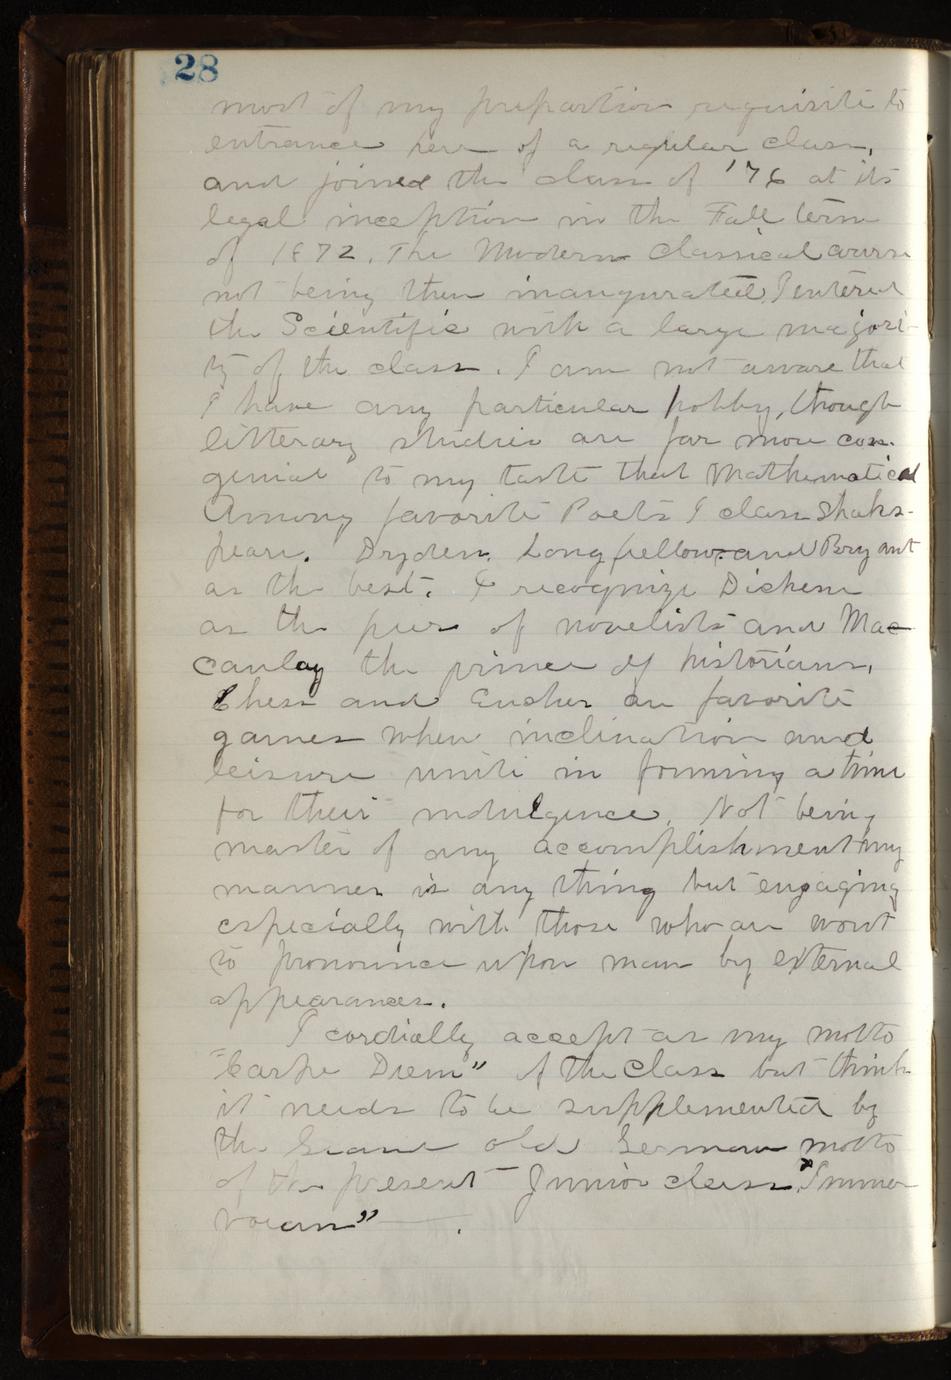 28
most of my prepartion requisite to
entrance here of a regular class,
and joined the class of '76 at its
legal inception in the Fall term
of 1872. The Modern Classical course
not being then inaugurated, I entered
the Scientific with a large majori-
ty of the class. I am not aware that
I have any particular hobby, though
litterary studies are far more con-
genial to my taste that Mathematical
Among favorite Poets I class Shaks-
peare. Dryden, Longfellow and Bryant
as the best. I recognize Dickens
as the peer of novelists and Mac-
caulay the prince of historians.
Chess and Eucher are favorite
games when inclination and
leisure unite in forming a time
for their indulgence. Not being
master of any accomplishment my
manner is any thing but engaging
especially with those who are wont
to pronounce upon man by external
appearances.
I cordially accept as my motto
"Carpe Diem" of the Class but think
it needs to be supplemented by
the Grand old German motto
of the present Junior class "Immer
voran"